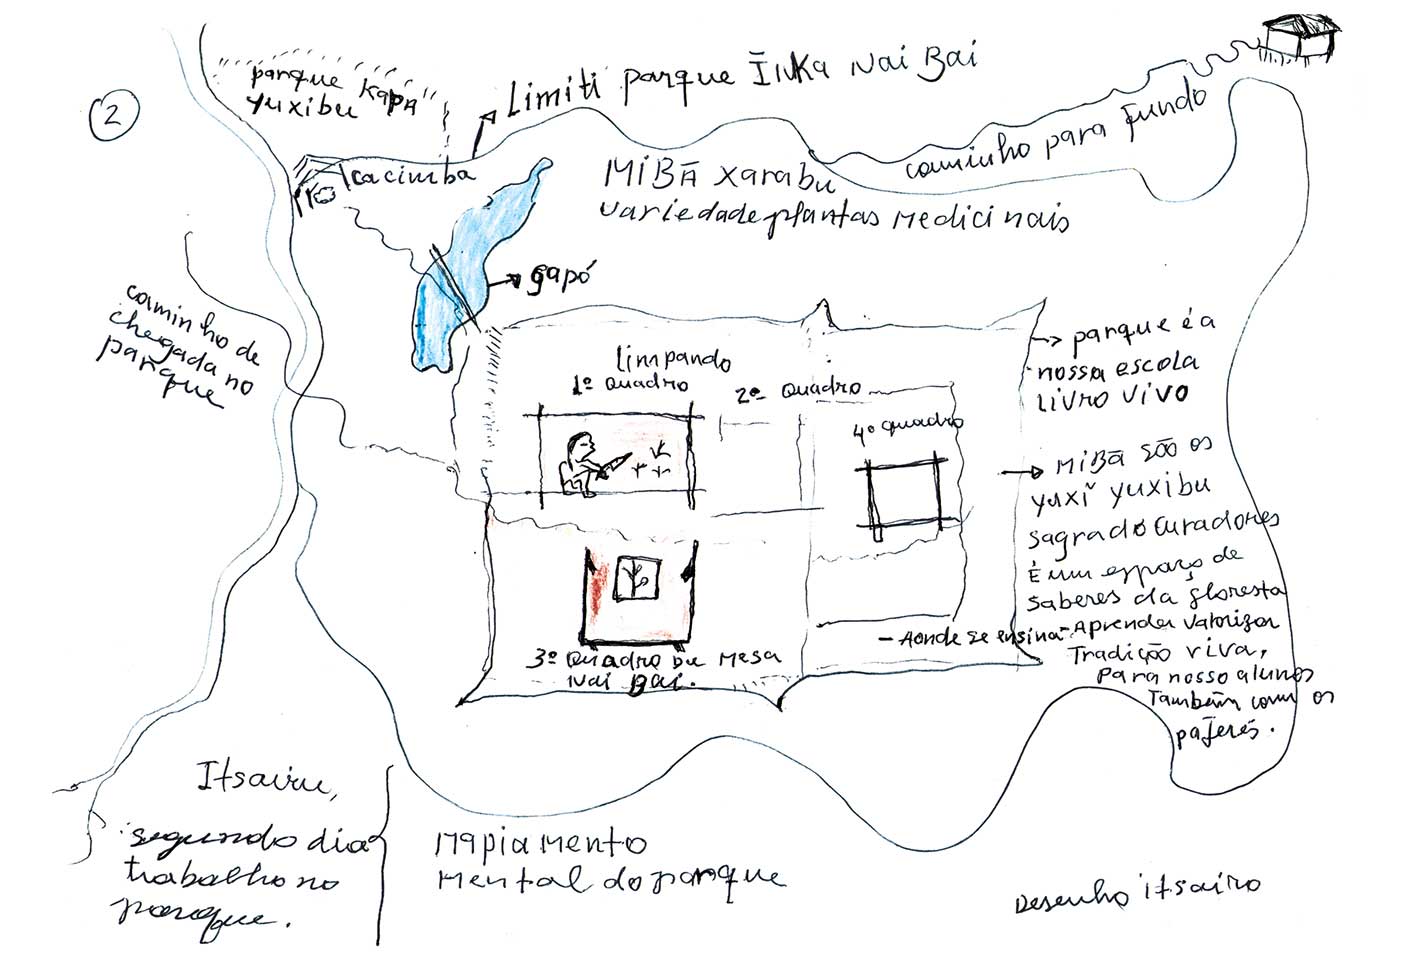 2
parque Kapa
yuxibu
Limiti parque Ĩnka Nai Bai
caminho para Fundo
cacimba
MiBÃ xarabu
variedade plantas Medicinais
gapó
caminho de
chegada no
parque
Limpando
1º Quadro
2º Quadro
4º Quadro
3º Quadro bu Mesa
Nai Bai.
parque é a
nossa escola
Livro vivo
MiBã são os
yuxĩ yuxibu
sagrado curadores
É um espaço de
saberes da floresta
- Aonde se ensina - Aprender valorizar
Tradição viva,
para nosso alunos
Também com os
pajerés.
Itsairu,
segundo dia
trabalho no
parque.
Mapiamento
Mental do parque
Desenho itsairo